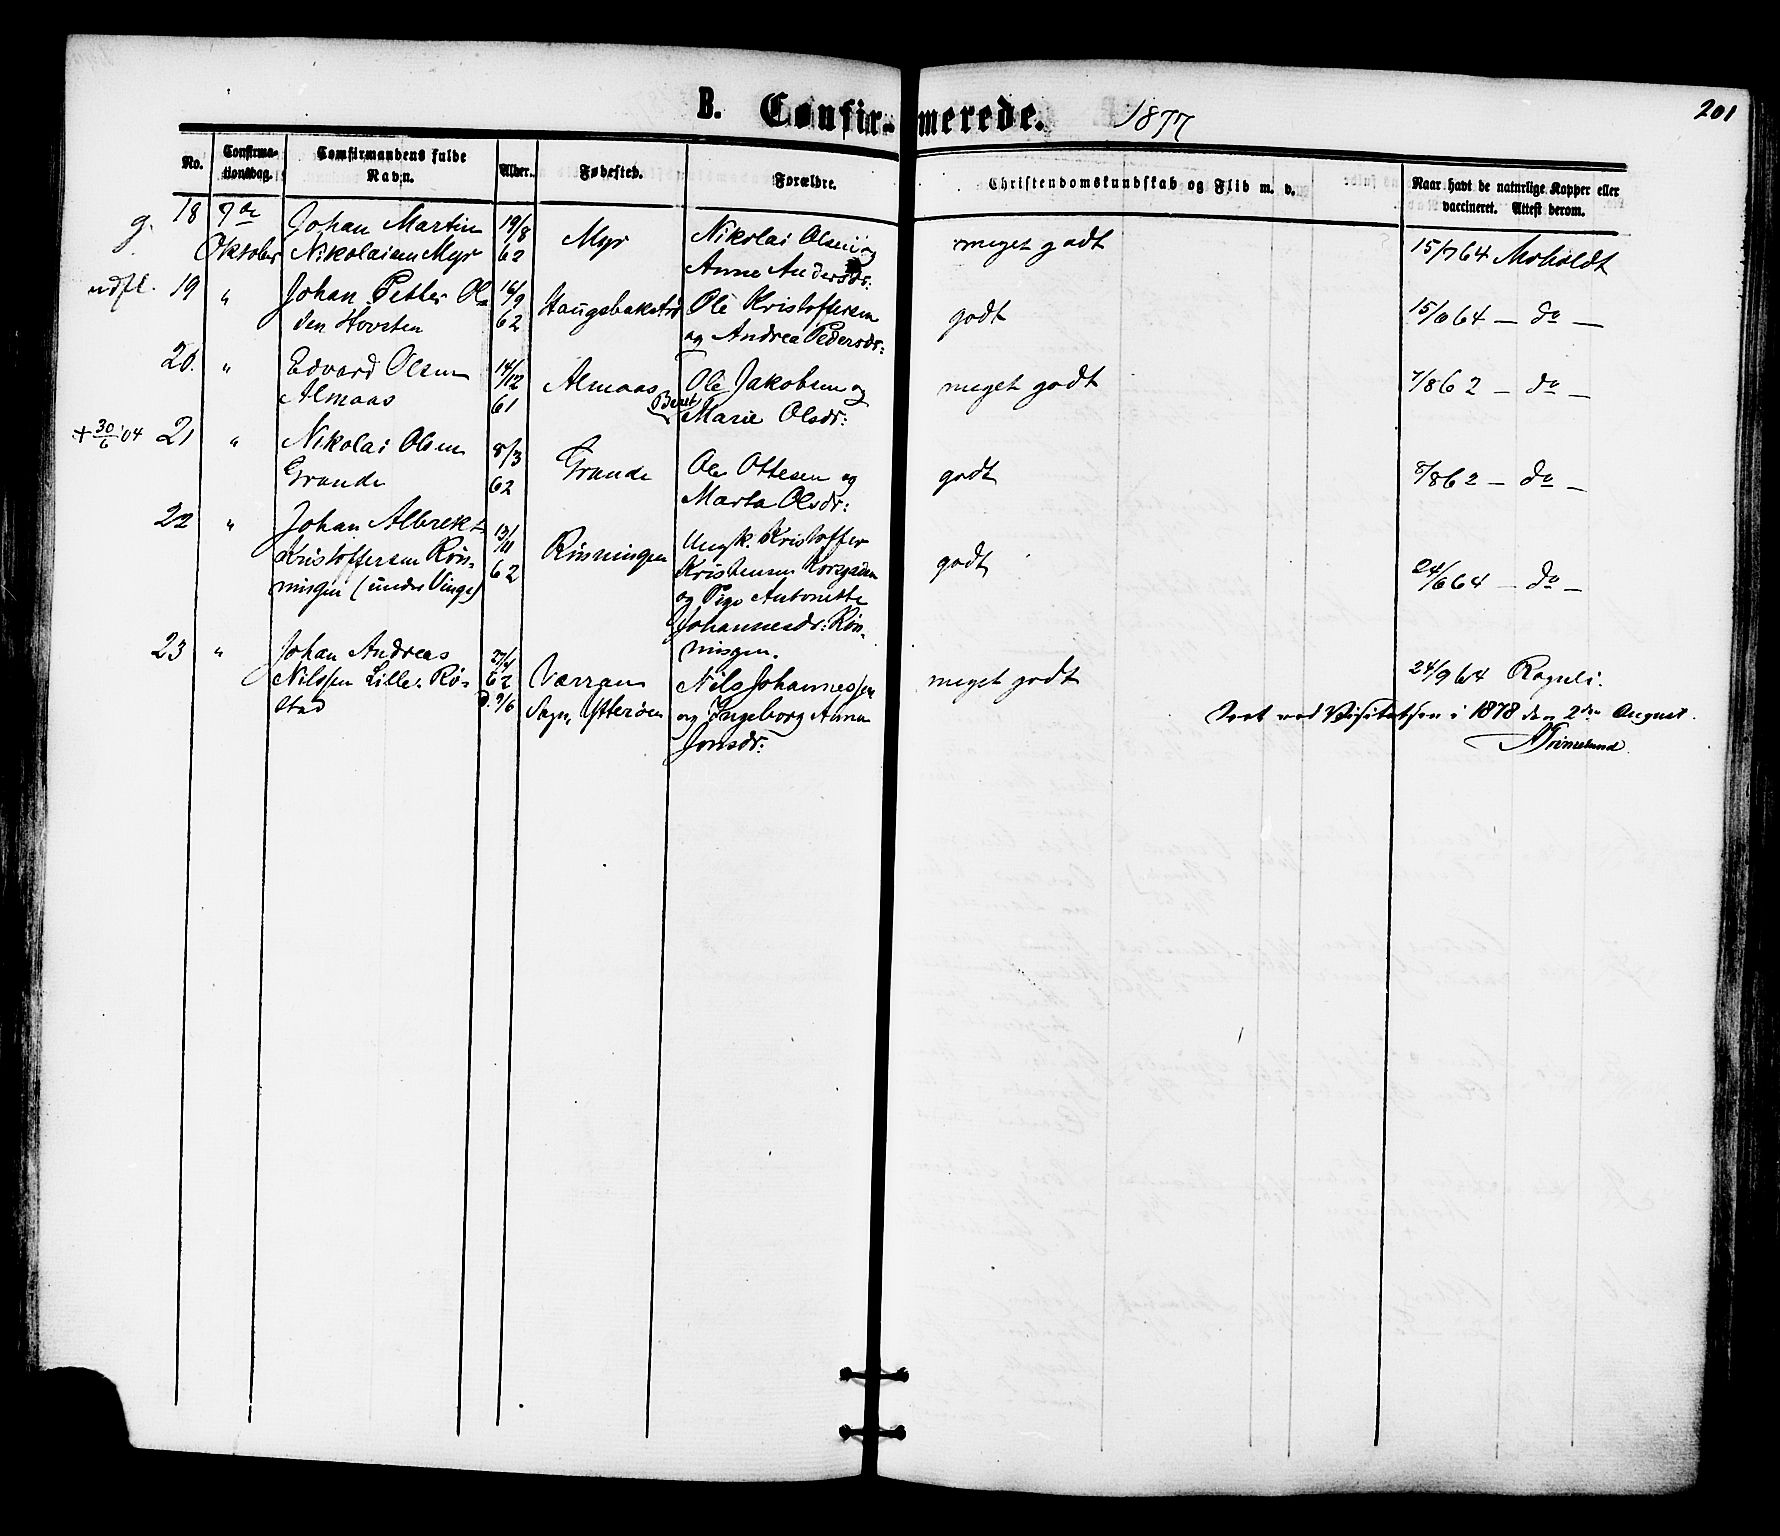 201
B. Confirmerede. 1877
No. Confirmationsdag. Comfirmandens fulde Navn. Alder. Fødested. Forældre. Christendomskundskab og Flid m. v. Naar havt de naturlige Kopper eller vaccineret. Attest derom.
g. 18 7de Johan Martin 19/8 Myr Nikolai Olsen og meget godt 15/7 64 Moholdt
Oktober Nikolaisen Myr 62 Anne Andersdr:
udfl. 19 " Johan Petter Ol- 16/9 Haugsbakstrø Ole Kristoffersen godt 15/6 64 — do —
den Hovsten 62 og Andrea Pedersdr:
20. " Edvard Olsen 14/12 Almaas Ole Jakobsen og meget godt 7/8 62 — do —
Almaas 61 Beret Marie Olsdr:
+ 30/6 '04 21 " Nikolai Olsen 8/3 Grande Ole Ottesen og godt 8/8 62 — do —
Grande 62 Marta Olsdr:
22 " Johan Albrekt 13/11 Rønningen Ungk. Kristoffer godt 24/6 64 — do —
Kristoffersen Røn- 62 Kristensen Korsgaden
ningen (under Vinge) og Pige Antonette
Johannesdr: Røn-
ningen.
23 " Johan Andreas 27/4 Værran Nils Johannessen meget godt 24/9 64
Nilssen Lille-Rø- 62 Sogn, Ytterøen og Ingeborg Anna
stad D. 9/6 Jonsdr:
Seet ved Visitatsen i 1878 den 2den August.